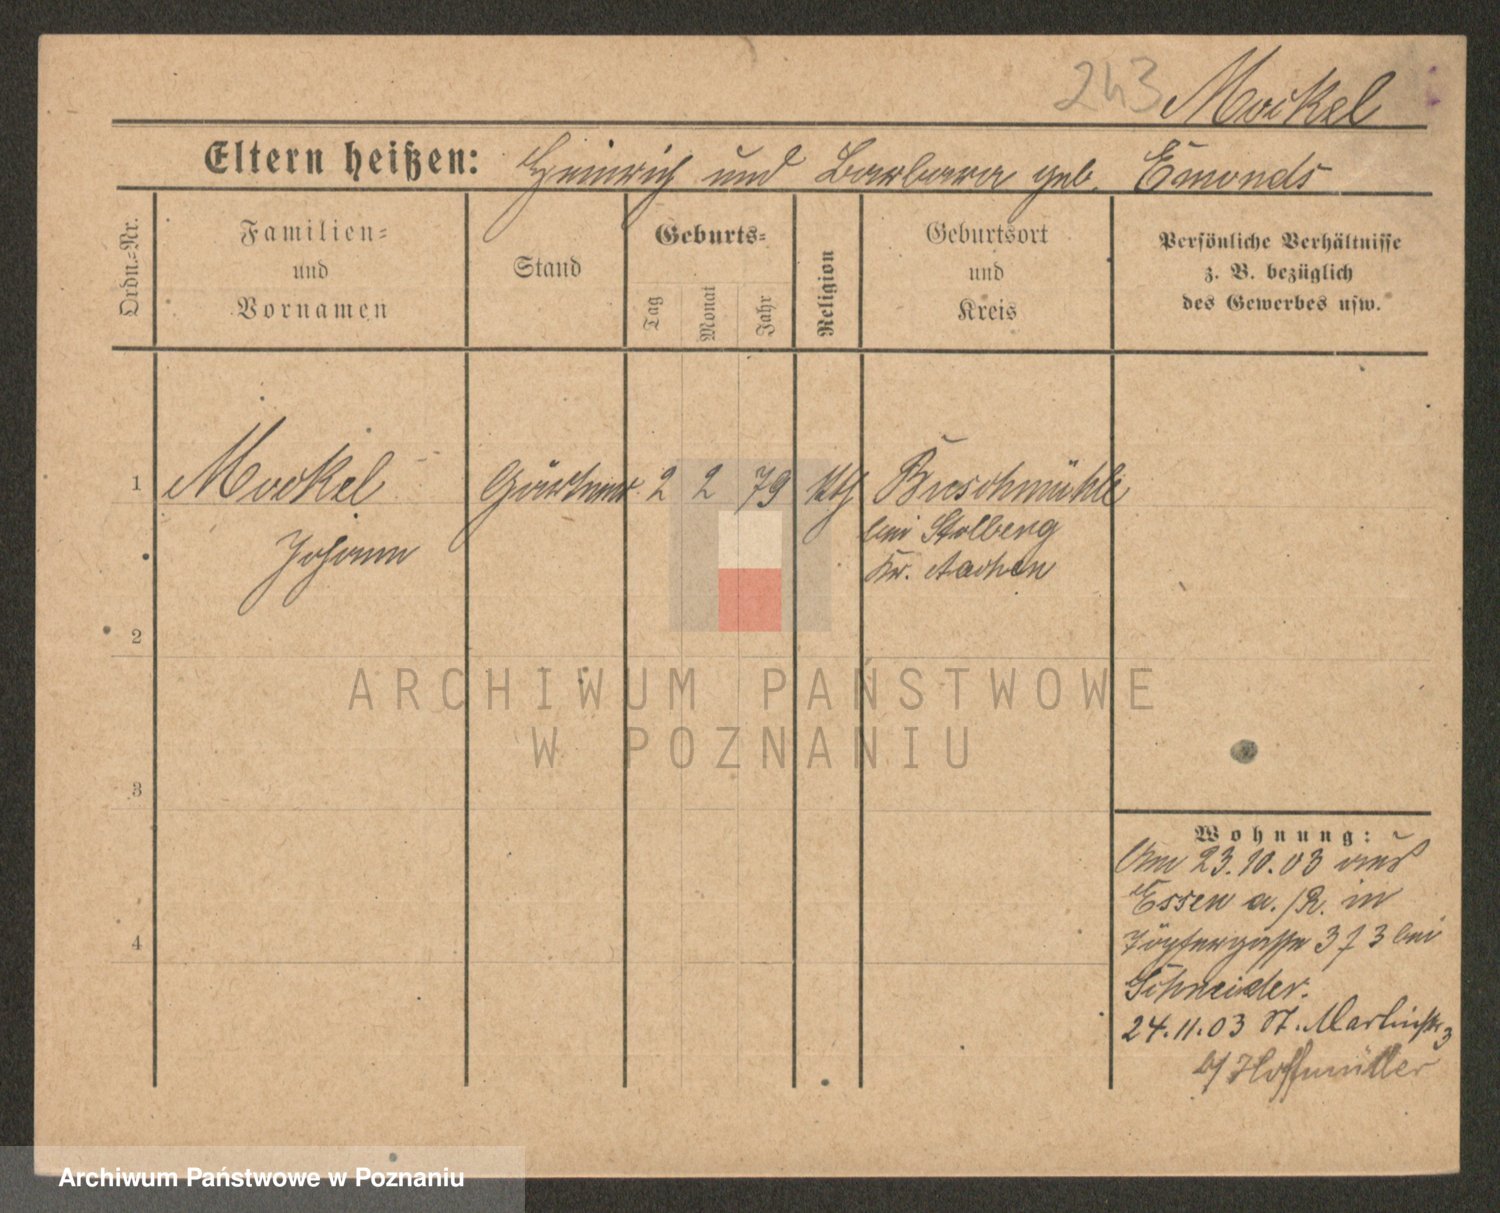 243 Mockel
Eltern heißen: Heinrich und Barbara geb. Emonds
Ordn.-Nr.
Familien-
und
Vornamen
Stand
Geburts-
Tag
Monat
Jahr
Religion
Geburtsort
und
Kreis
Persönliche Verhältnisse
z. B. bezüglich
des Gewerbes usw.
1 Mockel Gärtner 2 2 79 kth Buschmühle
Johann bei Stolberg
Kr. Aachen
2
ARCHIWUM PAŃSTWOWE
W POZNANIU
3
4
Wohnung:
Am 23.10.03 aus
Essen a./R. in
Töpfergasse 3 bei
Schneider.
24.11.03 St. Martinstr 3
b/ Hoffmüller
Archiwum Państwowe w Poznaniu